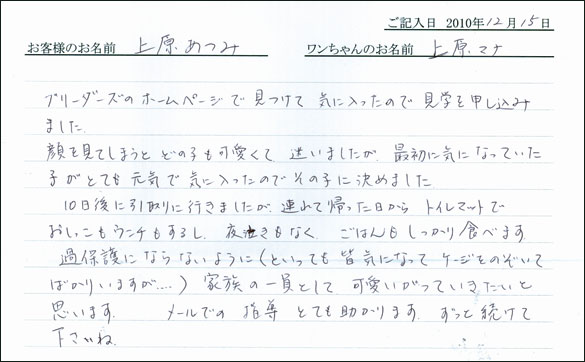 ご記入日 2010年12月15日
お客様のお名前 上原あつみ ワンちゃんのお名前 上原マナ
ブリーダーズのホームページで見つけて 気に入ったので 見学を申し込み
ました.
顔を見てしまうと どの子も可愛くて 迷いましたが 最初に気になっていた
子がとても元気で気に入ったのでその子に決めました
10日後に引取りに行きましたが、連れて帰った日から トイレマットで
おしっこもウンチもするし、夜泣きもなく ごはんもしっかり食べます.
過保護にならないように(といっても皆気になってケージをのぞいて
ばかりいますが....) 家族の一員として 可愛いがっていきたいと
思います. メールでの指導 とても助かります. ずっと続けて
下さいね.